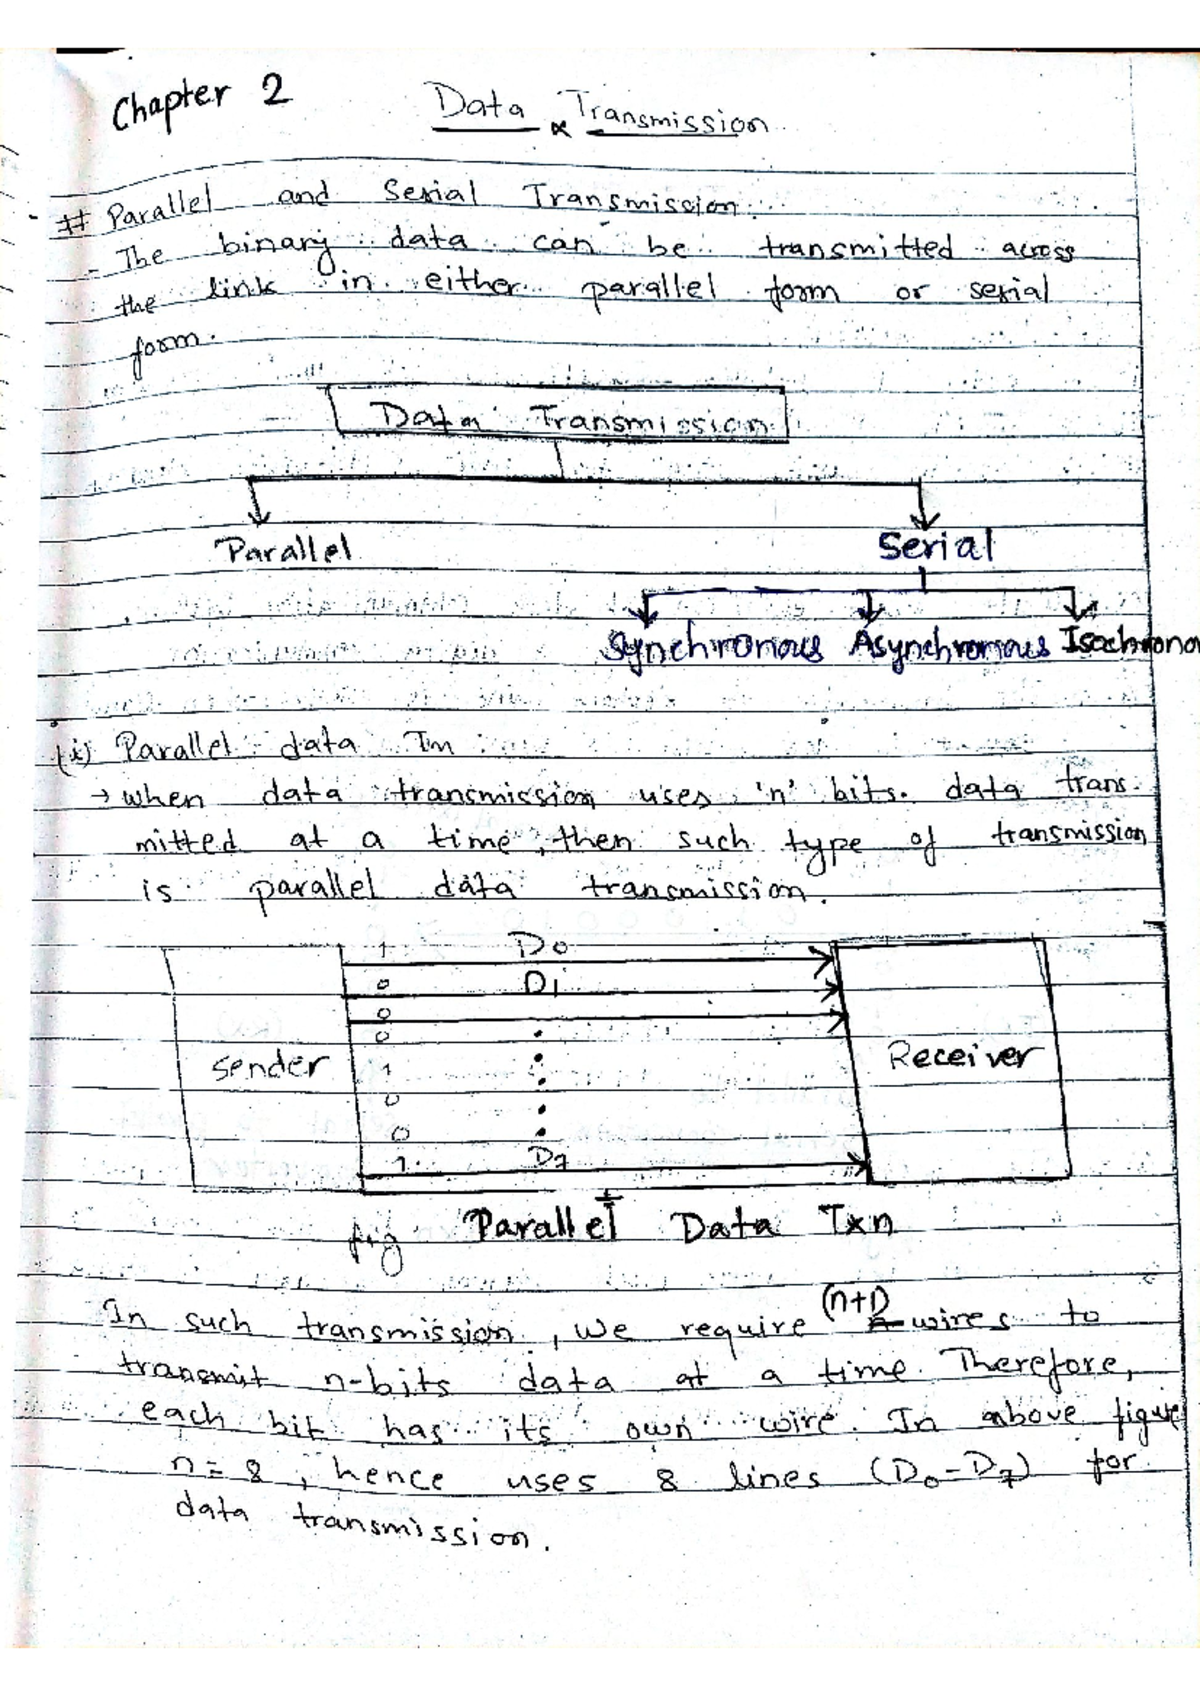 Chapter 2
Data Transmission
# Parallel and Serial Transmission
- The binary data can be transmitted across
the link in either parallel form or serial
form.
Data Transmission
Parallel Serial
Synchronous Asynchronous Isochrono
(i) Parallel data Txn
→ when data transmission uses 'n' bits data trans-
mitted at a time, then such type of transmission
is parallel data transmission.
1 D0
0 D1
0
0
sender 1 Receiver
0
0
1 D7
fig Parallel Data Txn
In such transmission, we require (n+1) wires to
transmit n-bits data at a time. Therefore,
each bit has its own wire. In above figure
n = 8, hence uses 8 lines (D0-D7) for
data transmission.